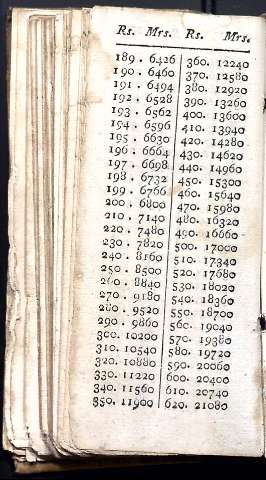 Rs. Mrs. Rs. Mrs.
189. 6426 360. 12240
190. 6460 370. 12580
191. 6494 380. 12920
192. 6528 390. 13260
193. 6562 400. 13600
194. 6596 410. 13940
195. 6630 420. 14280
196. 6664 430. 14620
197. 6698 440. 14960
198. 6732 450. 15300
199. 6766 460. 15640
200. 6800 470. 15980
210. 7140 480. 16320
220. 7480 490. 16660
230. 7820 500. 17000
240. 8160 510. 17340
250. 8500 520. 17680
260. 8840 530. 18020
270. 9180 540. 18360
280. 9520 550. 18700
290. 9860 560. 19040
300. 10200 570. 19380
310. 10540 580. 19720
320. 10880 590. 20060
330. 11220 600. 20400
340. 11560 610. 20740
350. 11900 620. 21080